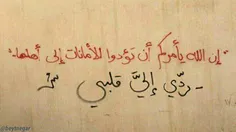 "إن الله يأمركم أن تؤدوا الأمانات إلى أهلها"
- ردّي إليّ قلبي
@beytnegar